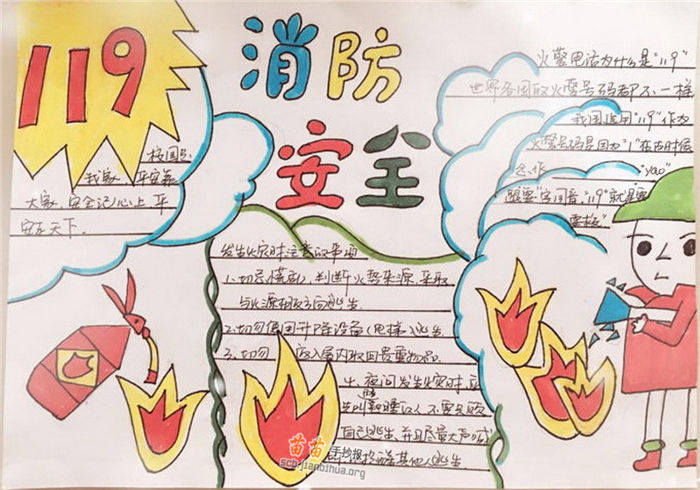 119
消防
安全
校园是
我家,平安靠
大家,安全记心上,平
安走天下。
火警电话为什么是"119"
世界各国的火警号码都不一样
我国选用"119"作为
火警号码是因为"1"在古时候
念作"yao"
跟"要"字同音,"119"就是要
要救
发生火灾时注意的事项
1、切忌慌乱,判断火势来源,采取
与火源相反方向逃生
2、切勿使用升降设备(电梯)逃生
3、切勿 入屋内取回贵重物品
4、夜间发生火灾时,应
先叫 熟睡的人,不要只顾
自己逃生,并且尽量大声喊
其他人逃生
苗苗
手抄报
scb.jianbihua.org